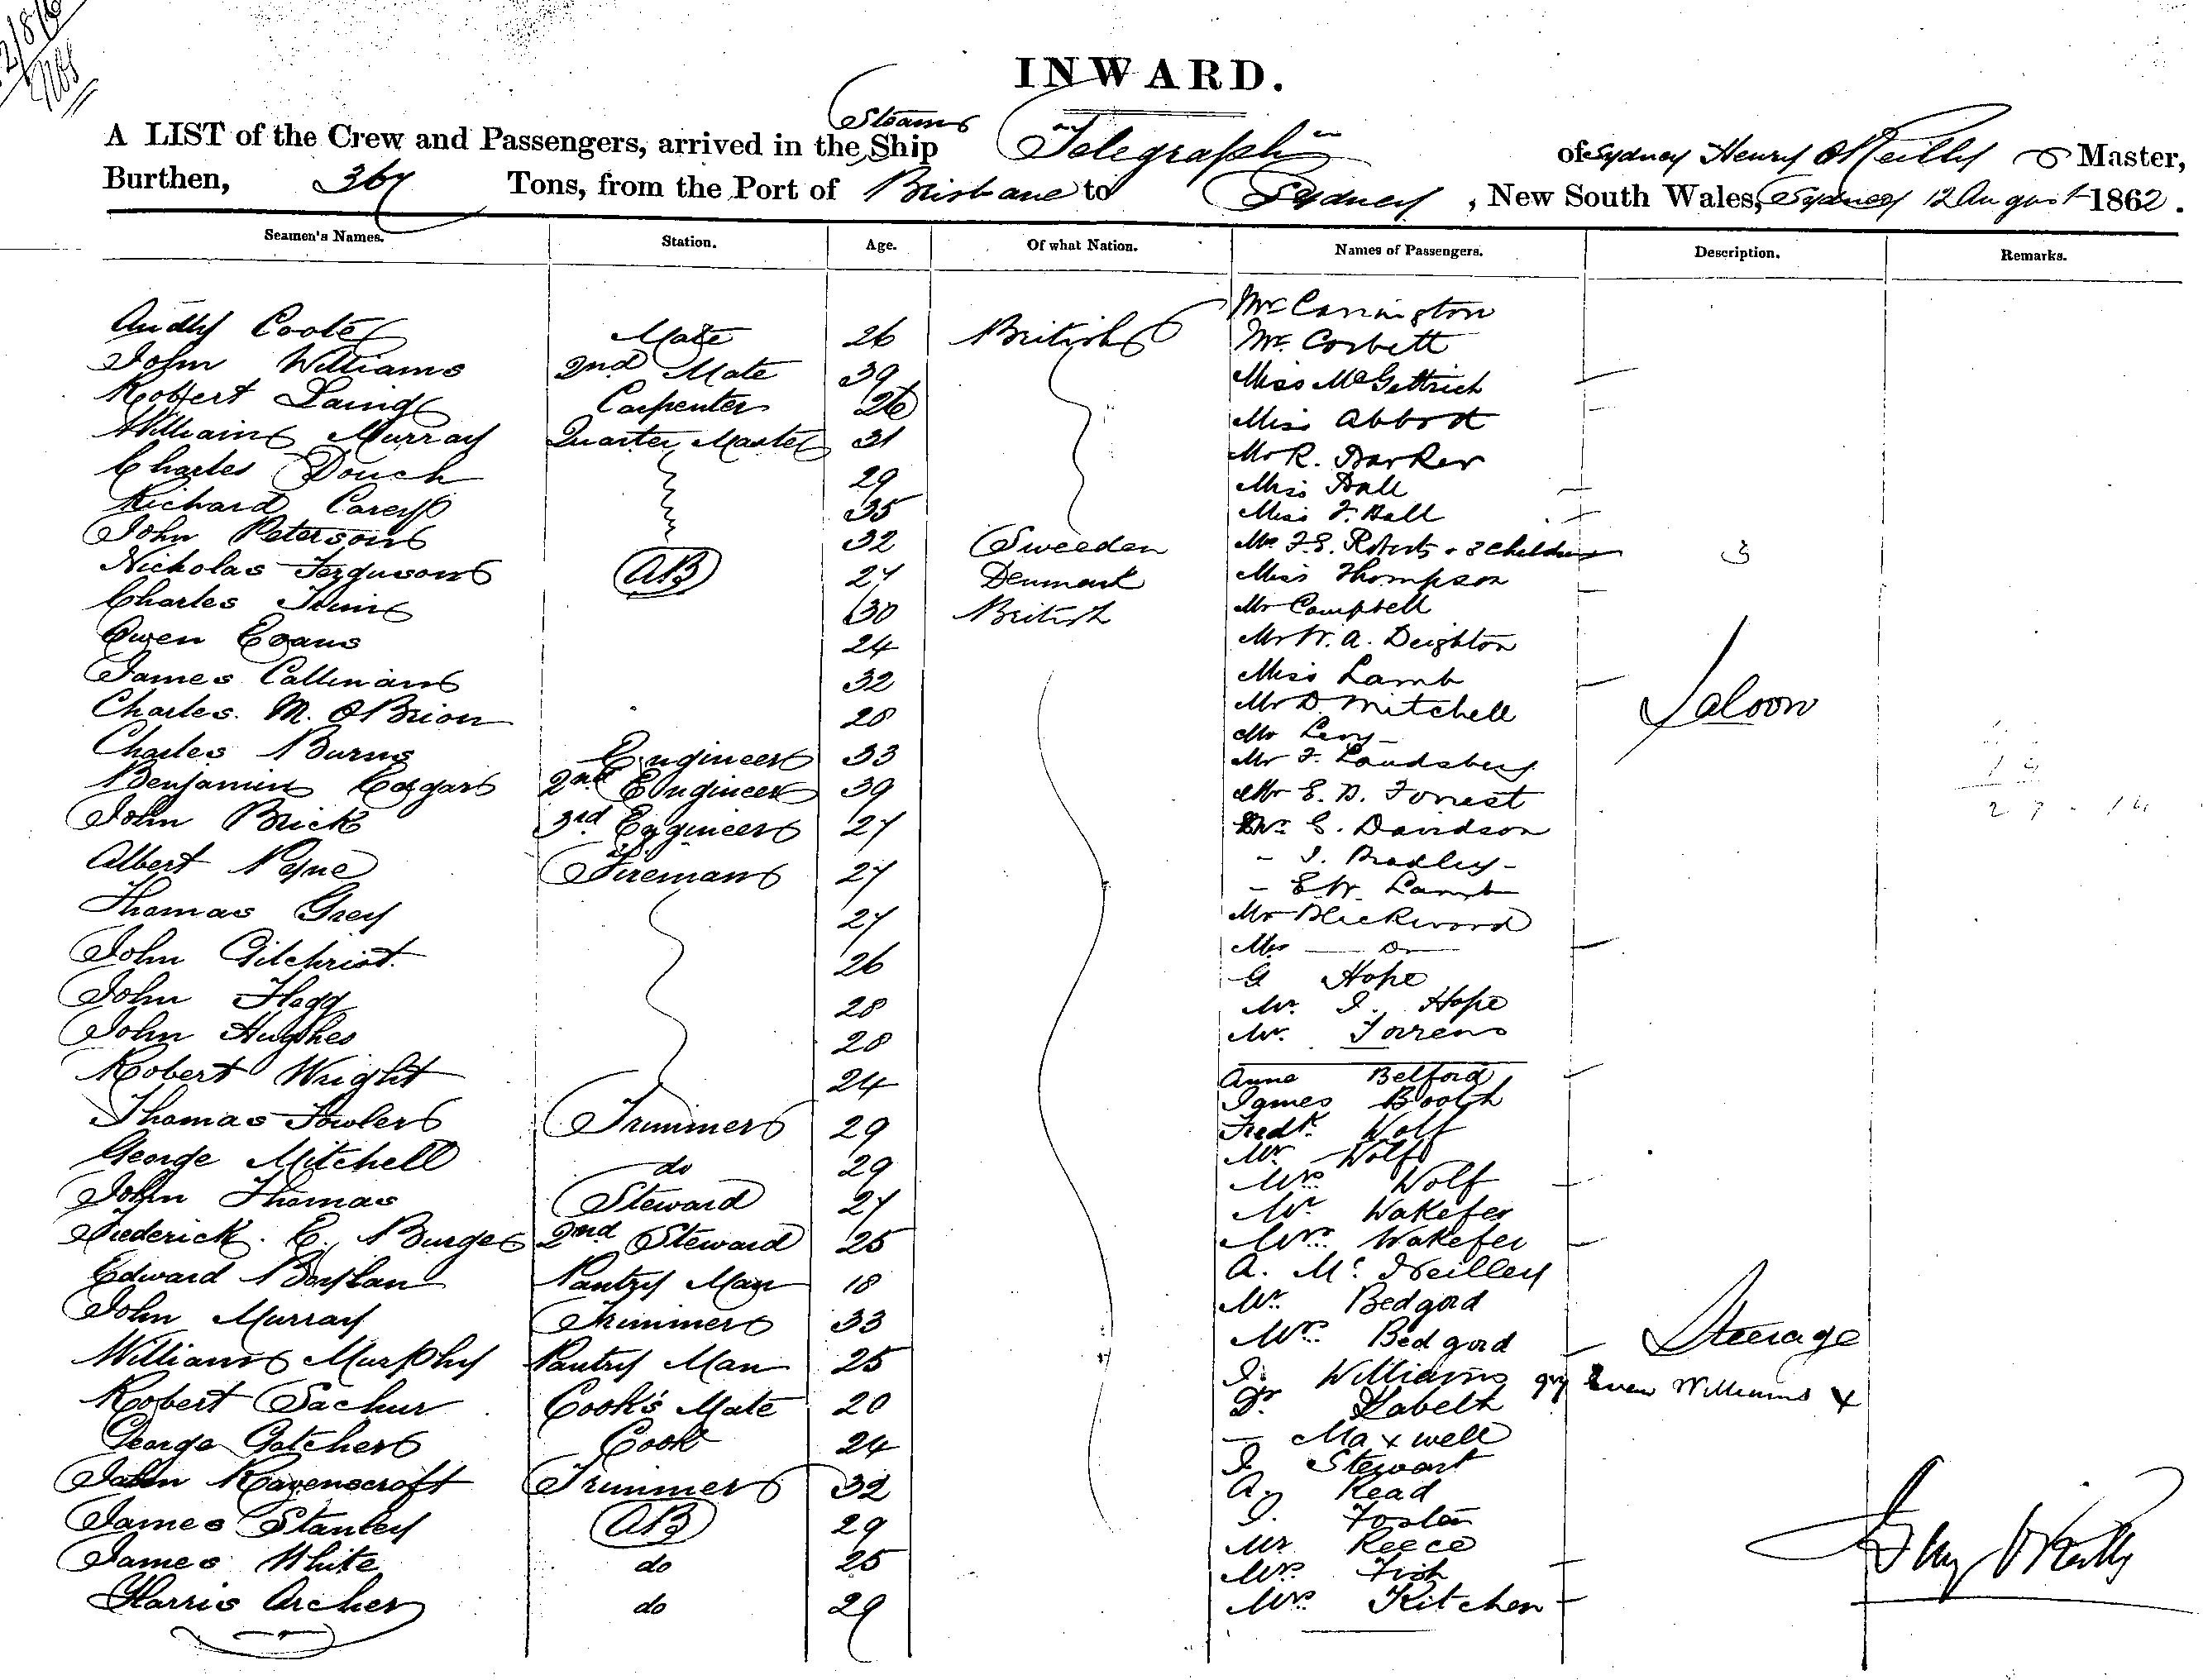 INWARD.
A LIST of the Crew and Passengers, arrived in the Steam Ship "Telegraph" of Sydney Henry O'Reilly Master,
Burthen, 367 Tons, from the Port of Brisbane to Sydney, New South Wales, Sydney 12 August 1862.
Seamen's Names. Station. Age. Of what Nation. Names of Passengers. Description. Remarks.
Audly Coote Mate 26 British
John Williams 2nd Mate 39
Robert Laing Carpenter 26
William Murray Quarter Master 31
Charles Douch 29
Richard Carey 35
John Peterson 32 Sweeden
Nicholas Ferguson AB 27 Denmark
Charles 30 British
Owen Evans 24
James Callinan 32
Charles. M. OBrion 28
Charles Burns Engineer 33
Benjamin 2nd Engineer 39
John Brick 3rd Engineer 27
Albert Payne Fireman 27
Thomas Grey 27
John Gilchrist. 26
John Flagg 28
John Hughes 28
Robert Wright 24
Thomas Fowler Trimmer 29
George Mitchell do 29
John Thomas Steward 27
Frederick. E. Burges 2nd Steward 25
Edward Boylan Pantry Man 18
John Murray Trimmer 33
William Murphy Pantry Man 25
Robert Sachur Cook's Mate 20
George Gatcher Cook 24
John Ravenscroft Trimmer 32
James Stanley AB 29
James White do 25
Harris Archer do 29
Mr Carrington
Mr. Corbett
Miss McGettrich
Miss Abbott
Mr R. Barker
Miss Hall
Miss F. Hall
F.E. Roberts + 3 Children 3
Miss Thompson
Mr Campbell
Mr W. A. Deighton
Miss Lamb
Mr D. Mitchell Saloon
Mr Levy
Mr F. Landsberg
Mr E. D. Forrest
G. Davidson
- J. Bradley -
- E W. Lamb
Mr Blickwood
Mrs Do
G Hope
Mr. J. Hope
Mr. Torrens
Anne Belford
James Booth
Fredk. Wolf
Mr Wolf
Mrs Wolf
Mr Wakefer
Mrs Wakefer
A. Mc. Neilley
Mr. Bedgord
Mrs. Bedgord Steerage
J. Williams Even Williams X
Dr. Habelt
— Maxwell
J Stewart
A. Read
J. Foster
Mr Reece
Mrs. Fish
Mrs. Kitchen
Henry O'Reilly